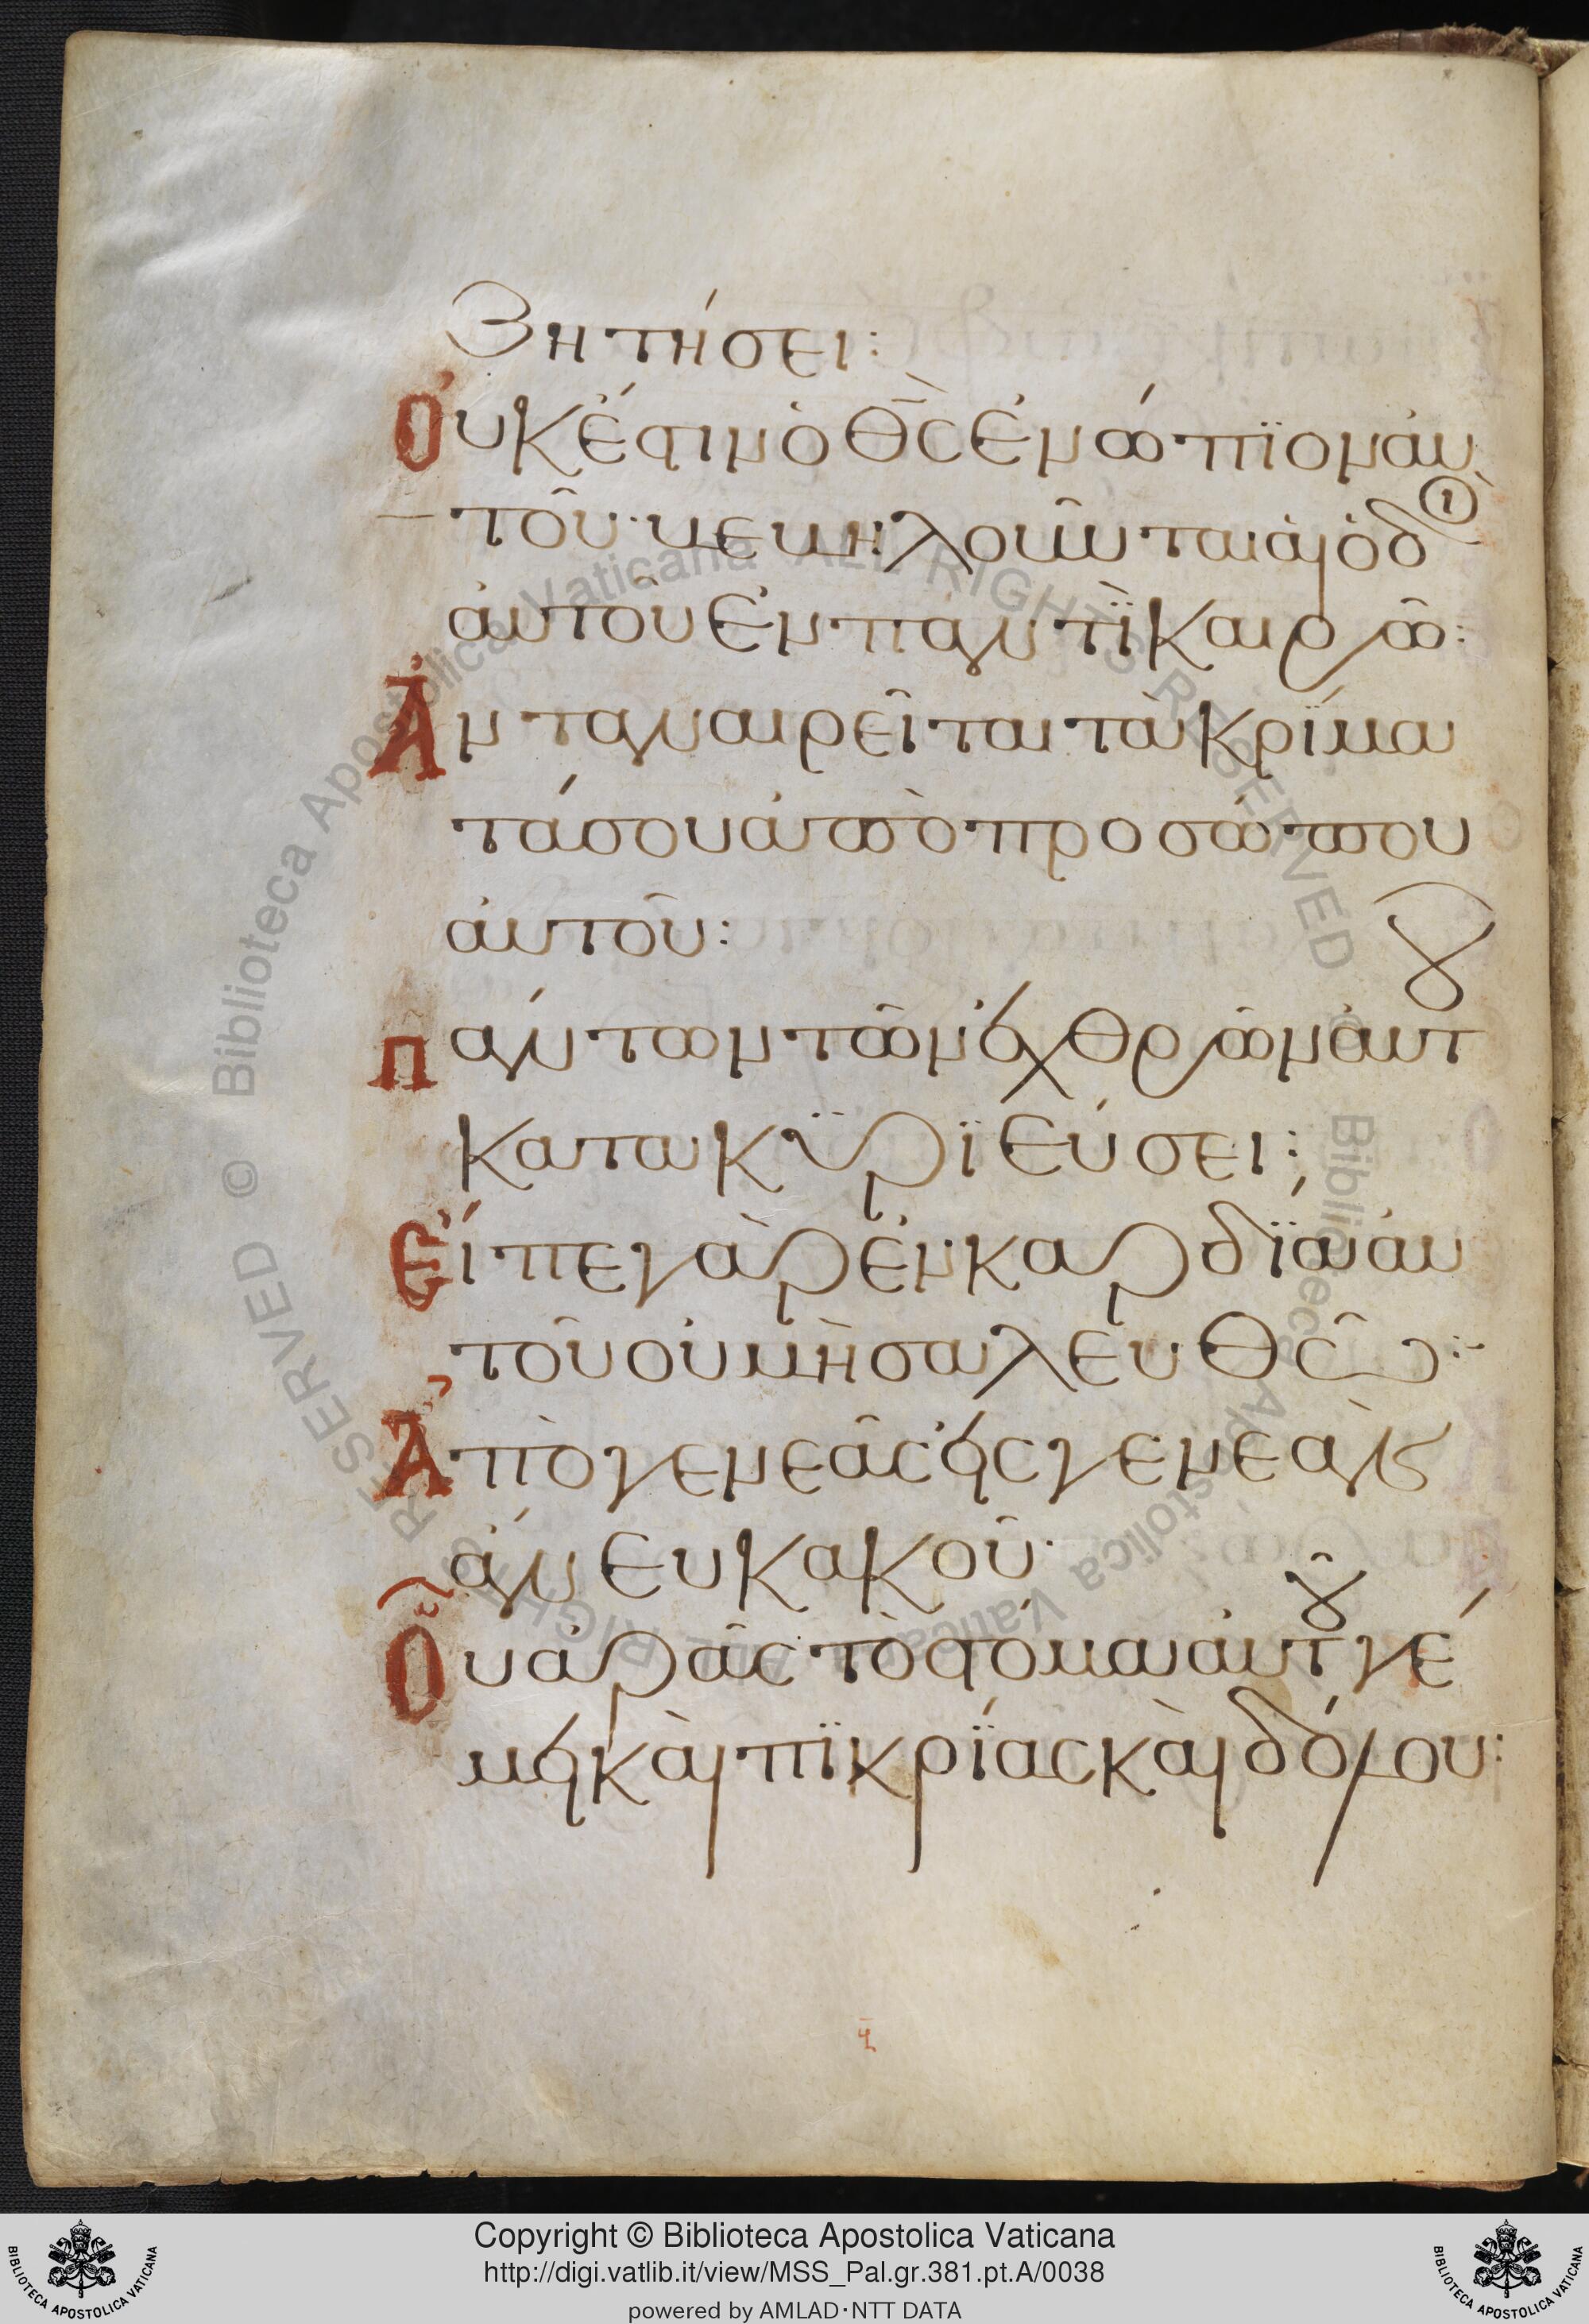 Ζητήσει:
Οὐκ ἔστιν ὁ θ̅ς̅ ἐνώπϊον αὐ
τοῦ· βεβηλοῦνται αἱ ὁδοὶ
αὐτοῦ ἐν παντῒ καιρῶ:
Ἀνταναιρεῖται τὰ κρίμα
τά σου ἀπὸ προσώπου
αὐτοῦ:
Πάντων τῶν ἐχθρῶν αὐτου
κατακϋριεύσει:
Εἶπε γὰρ ἐν καρδίᾳ αὐ
τοῦ οὐ μὴ σαλευθῶ:
Ἀπὸ γενεᾶς εἰς γενεὰν
ἄνευ κακοῦ·
Οὗ ἀρᾶς τὸ στόμα αὐτοῦ γέ
μει καὶ πϊκρίας καὶ δόλου:
Copyright © Biblioteca Apostolica Vaticana
http://digi.vatlib.it/view/MSS_Pal.gr.381.pt.A/0038
powered by AMLAD·NTT DATA
BIBLIOTECA APOSTOLICA VATICANA
BIBLIOTECA APOSTOLICA VATICANA
© Biblioteca Apostolica Vaticana ALL RIGHTS RESERVED
© Biblioteca Apostolica Vaticana ALL RIGHTS RESERVED